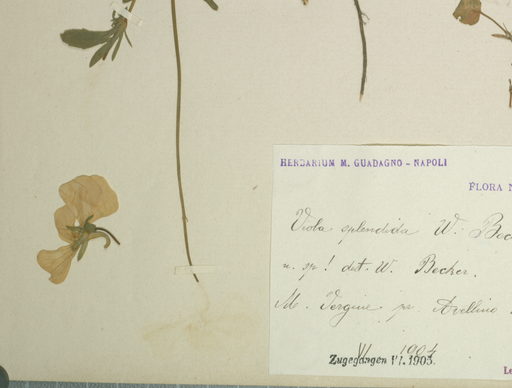 HERBARIUM M. GUADAGNO - NAPOLI
FLORA N
Viola splendida W. Bec
n. sp! det. W. Becker.
M. Vergine pr. Avellino
VI 1904
Zugegangen VI. 1905.
Le